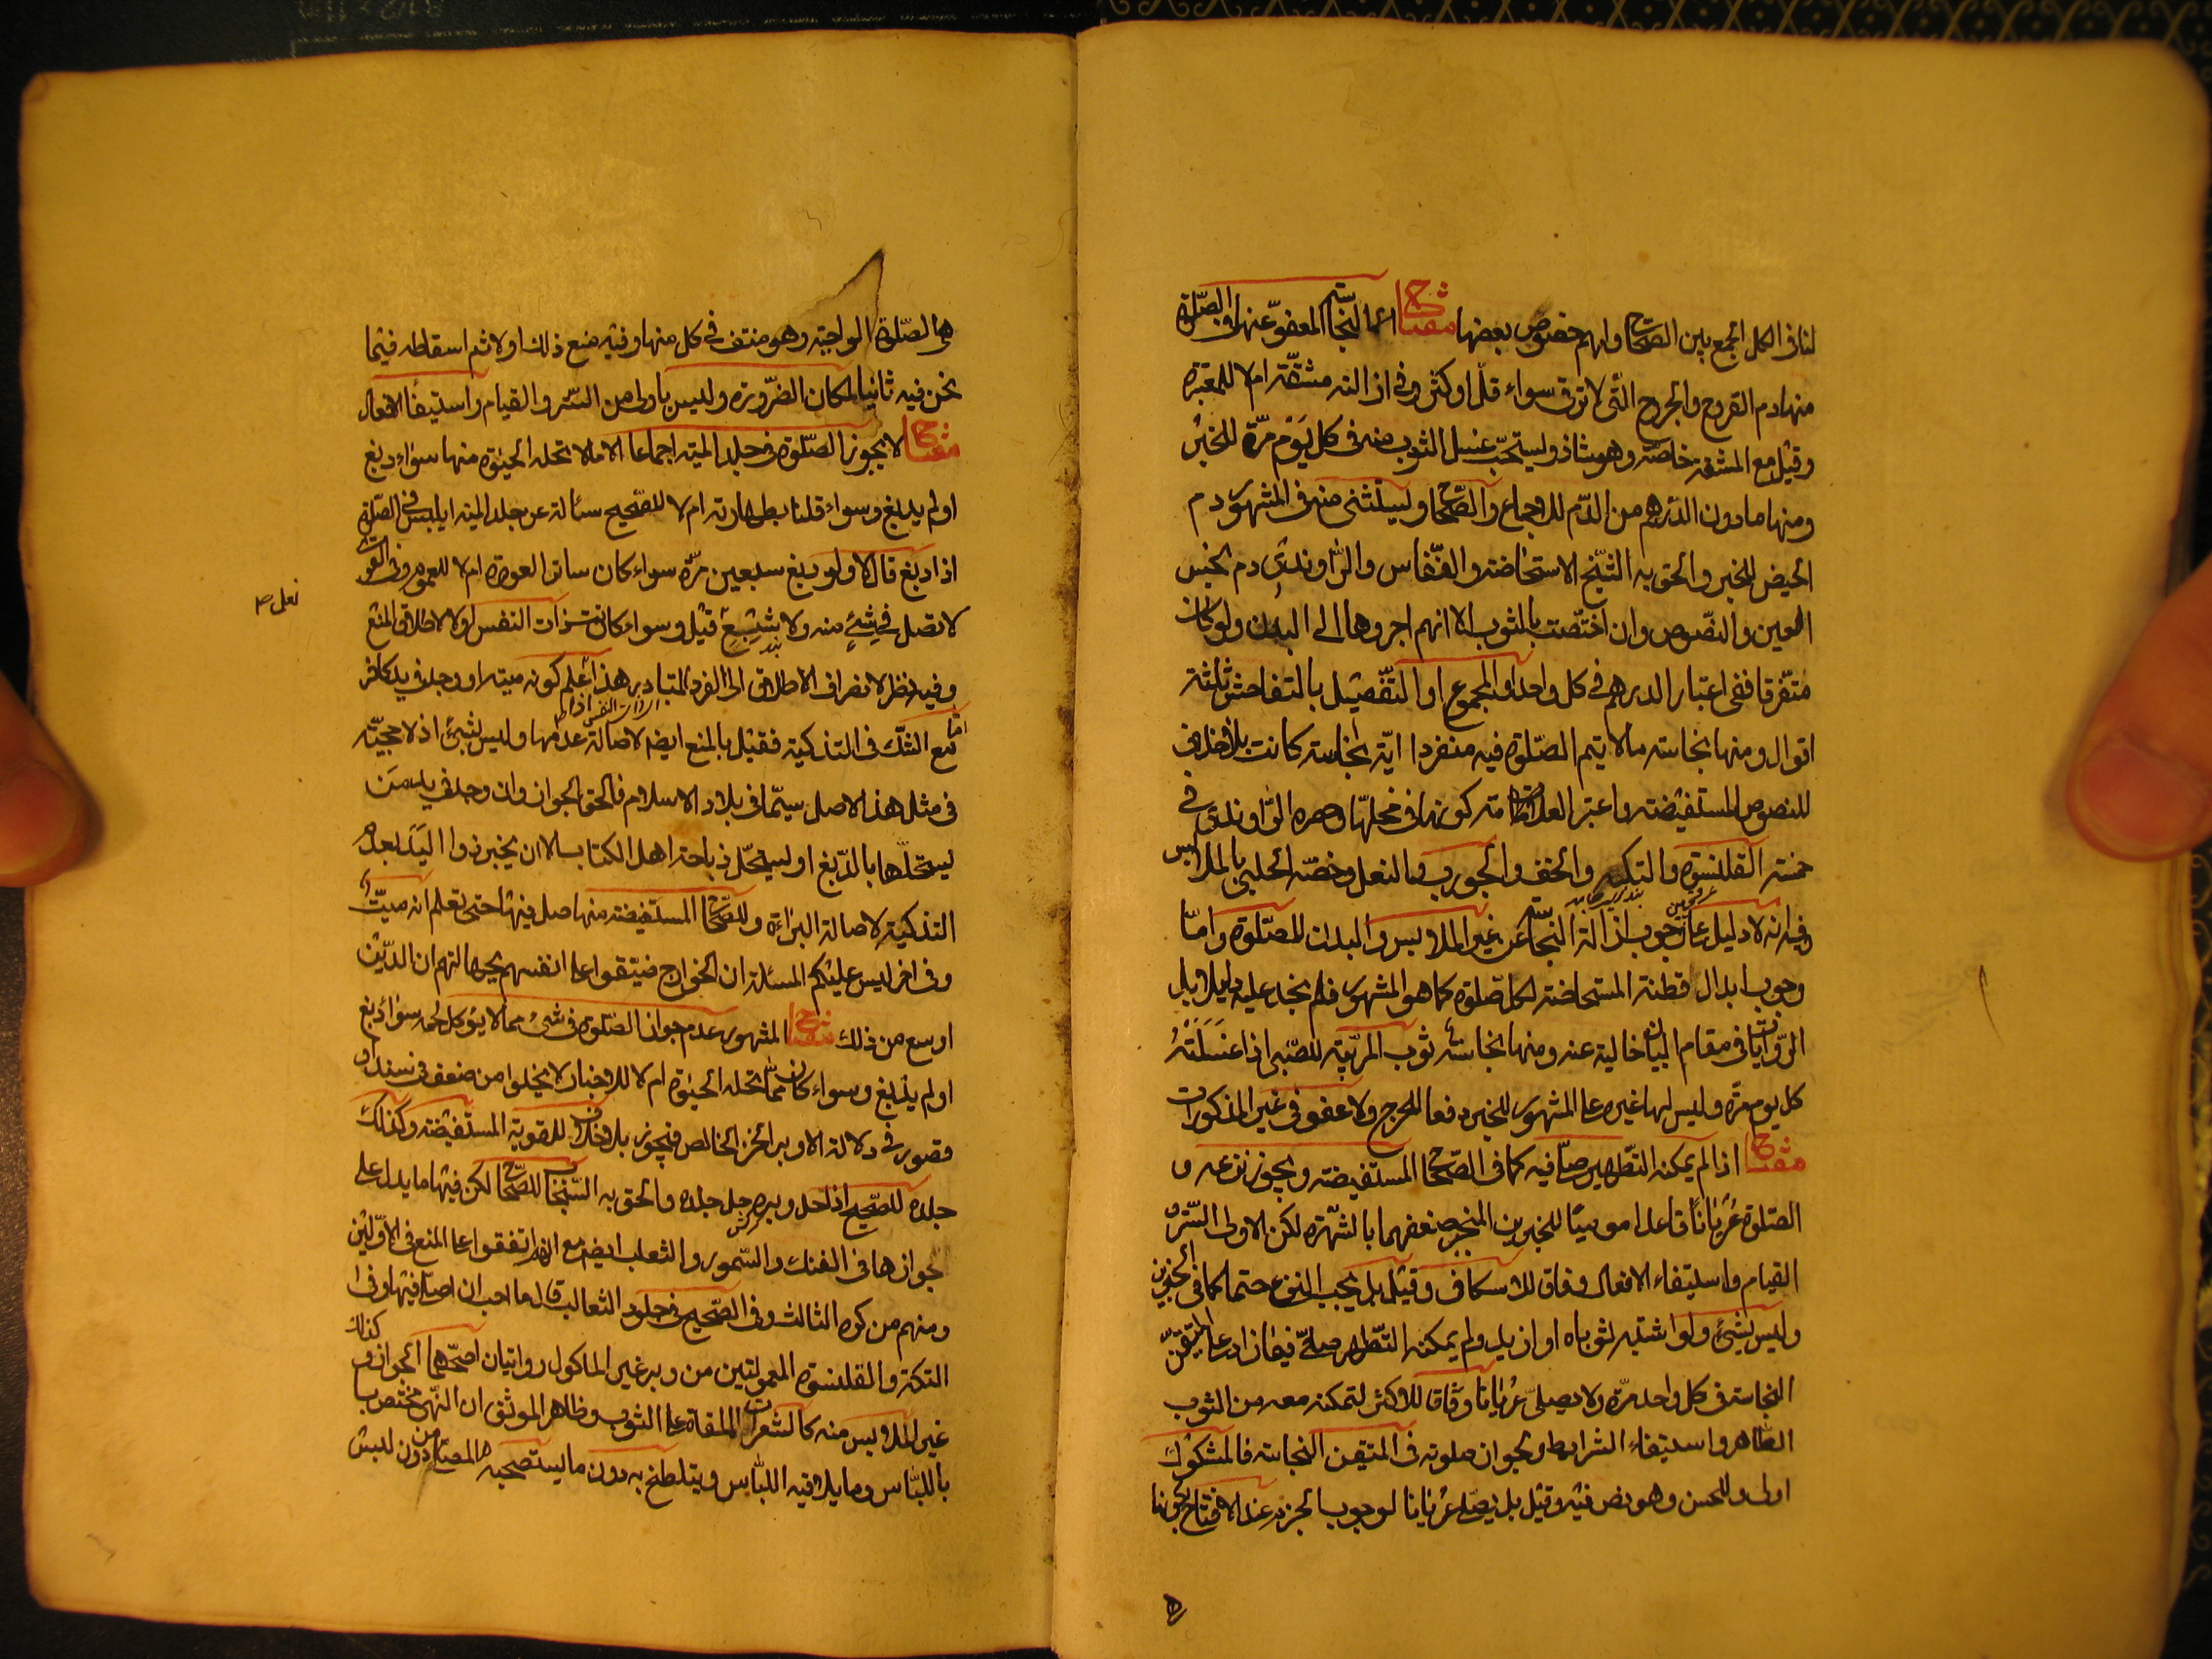 لنا فى الكل الجمع بين الصحاح وانهم خصوص بعضها مفتاح انما النجاسة المعفوّ عنها فى الصّلوة
منها دم القروح والجروح الّتى لا ترقى سواء قلّ او كثر وفى ازالته مشقّة ام لا للمعتبرة
وقيل مع المشقة خاصة وهو شاذ ويستحبّ غسل الثوب منه فى كل يَوْم مرّة للخبر
ومنها ما دون الدّرهم من الدّم للاجماع والصّحاح ويستثنى منه فى المشهور دم
الحيض للخبر والحق به الشّيخ الاستحاضة والنّفاس والرّاوندى دم نجس
العين والنصّوص وان اختصّت بالثوب الا انهم اجروها الى البدن ولو كان
مُتفّرقا ففى اعتبار الدرهم فى كل واحد او المجموع او التّفصيل بالتفاحش ثلثة
اقوال ومنها نجاسة ما لا يتم الصّلوة فيه منفردا ايّة نجاسة كانت بلا خلاف
للنصوص المستفيضة واعتبر العلامة كونها فى محلّها وحصره الرّاوندى فى
خمسة القلنسوة والتكة والخف والجورب والنعل وخصّه الحلبى بالملابس
وفيه انه لا دليل على وجوب ازالة النجاسة عن غير الملابس والبدن للصّلوة وامّا
وجوب ابدال قطنة المستحاضة لكل صّلوة كما هو المشهور فلم نجد عليه دليلا بل
الرّوايات فى مقام البيان خالية عنه ومنها نجاسة ثوب المربّية للصّبى اذا غسَلَتْهُ
كل يوم مرّة وليس لها غيره على المشهور للخبر دفعا للحرج ولا عفو فى غير المذكورات
مفتاح اذا لم يمكنه التّطهير صلّى فيه كما فى الصّحاح المستفيضة ويجوز نزعه و
الصّلوة عُرْيَاناً قاعدا موميًا للخبرين المنجبر ضعفهما بالشهرة لكن الاولى السّتر و
القيام واستيفاء الافعال وفاقا للاسكافى وقيل بل يجب النزع حتما كما فى الخبرين
وليس بشئ ولو اشتبه ثوباه او ازيد ولم يمكنه التّطهر صلّى فيما زاد على المتيقّن
النجاسة فى كل واحد مرّة ولا يصلّى عريانا وفاقا للاكثر لتمكنه معه من الثوب
الطّاهر واستيفاء الشرايط ولجواز صلوته فى المتيقن النجاسة فالمشكوك
اولى وللحسن وهو نص فيه وقيل بل يصلّى عريانا لوجوب الجزم عند الافتتاح بكونها
هى الصّلوة الواجبة وهو منتف فى كل منها وفيه منع ذلك اولا ثم اسقاطه فيما
نحن فيه ثانيا لمكان الضّرورة وليس باولى من السّتر والقيام واستيفاء الافعال
مفتاح لا يجوز الصّلوة فى جلد الميتة اجماعا الا ما لا تحله الحيوة منها سواء دبغ
او لم يدبغ وسواء قلنا بطهارته ام لا للصّحيح سئالته عن جلد الميتة ايلبس فى الصّلوة
اذا دبغ قال لا ولو دبغ سبعين مرّة سواء كان ساتر العورة ام لا للعموم وفى القوى
لا تصل فى شئ منه ولا شسع قيل وسواء كانت ذات النفس او لا لاطلاق المنع
نعل
وفيه نظر لانصراف الاطلاق الى الفرد المتبادر هذا اذا علم كونه ميتة او وجد فى يد كافر
امّا مع الشّك فى التذكية فقيل بالمنع ايضا لاصالة عدمها وليس بشئ اذ لا حجيّة
فى مثل هذا الاصل سيّما فى بلاد الاسلام فالحق الجواز وان وجد فى يد من
يستحلّها بالدّبغ او يستحلّ ذباحة اهل الكتاب الا ان يخبر ذوا اليد بعدم
التذكية لاصالة البراءة وللصّحاح المستفيضة منها صل فيها حتى تعلم انه ميّت
وفى اخر ليس عليكم المسئلة ان الخوارج ضيّقوا على انفسهم بجهالتهم ان الدّين
اوسع من ذلك مفتاح المشهور عدم جواز الصّلوة فى شئ مما لا يؤكل لحمه سواء دبغ
او لم يدبغ وسواء كان ممّا تحله الحيوة ام لا للاخبار لا يخلوا من ضعف فى سند او
قصور فى دلالة الا وبر الخز الخالص فيجوز بلا خلاف للقوية المستفيضة وكذلك
جلده للصّحيح اذا حل وبره حل جلده والحق به السّنجاب للصّحاح لكن فيها ما يدل على
جوازها فى الفنك والسّمور والثعلب ايضا مع انهم اتفقوا على المنع فى الاوّلين
ومنهم من كره الثالث وفى الصّحيح فى جلود الثعالب قال ما احب ان اصلّى فيها وفى
التكة والقلنسوة المعمولتين من وبر غير المأكول روايتان اصحّهما الجواز وكذلك
غير الملابس منه كالشعرات الملقاة على الثوب وظاهر الموثق ان النّهى مختص ب
باللّباس وما يلاقيه اللبّاس ويتلطخ به دون ما يستصحبه المصلى من دون لبس